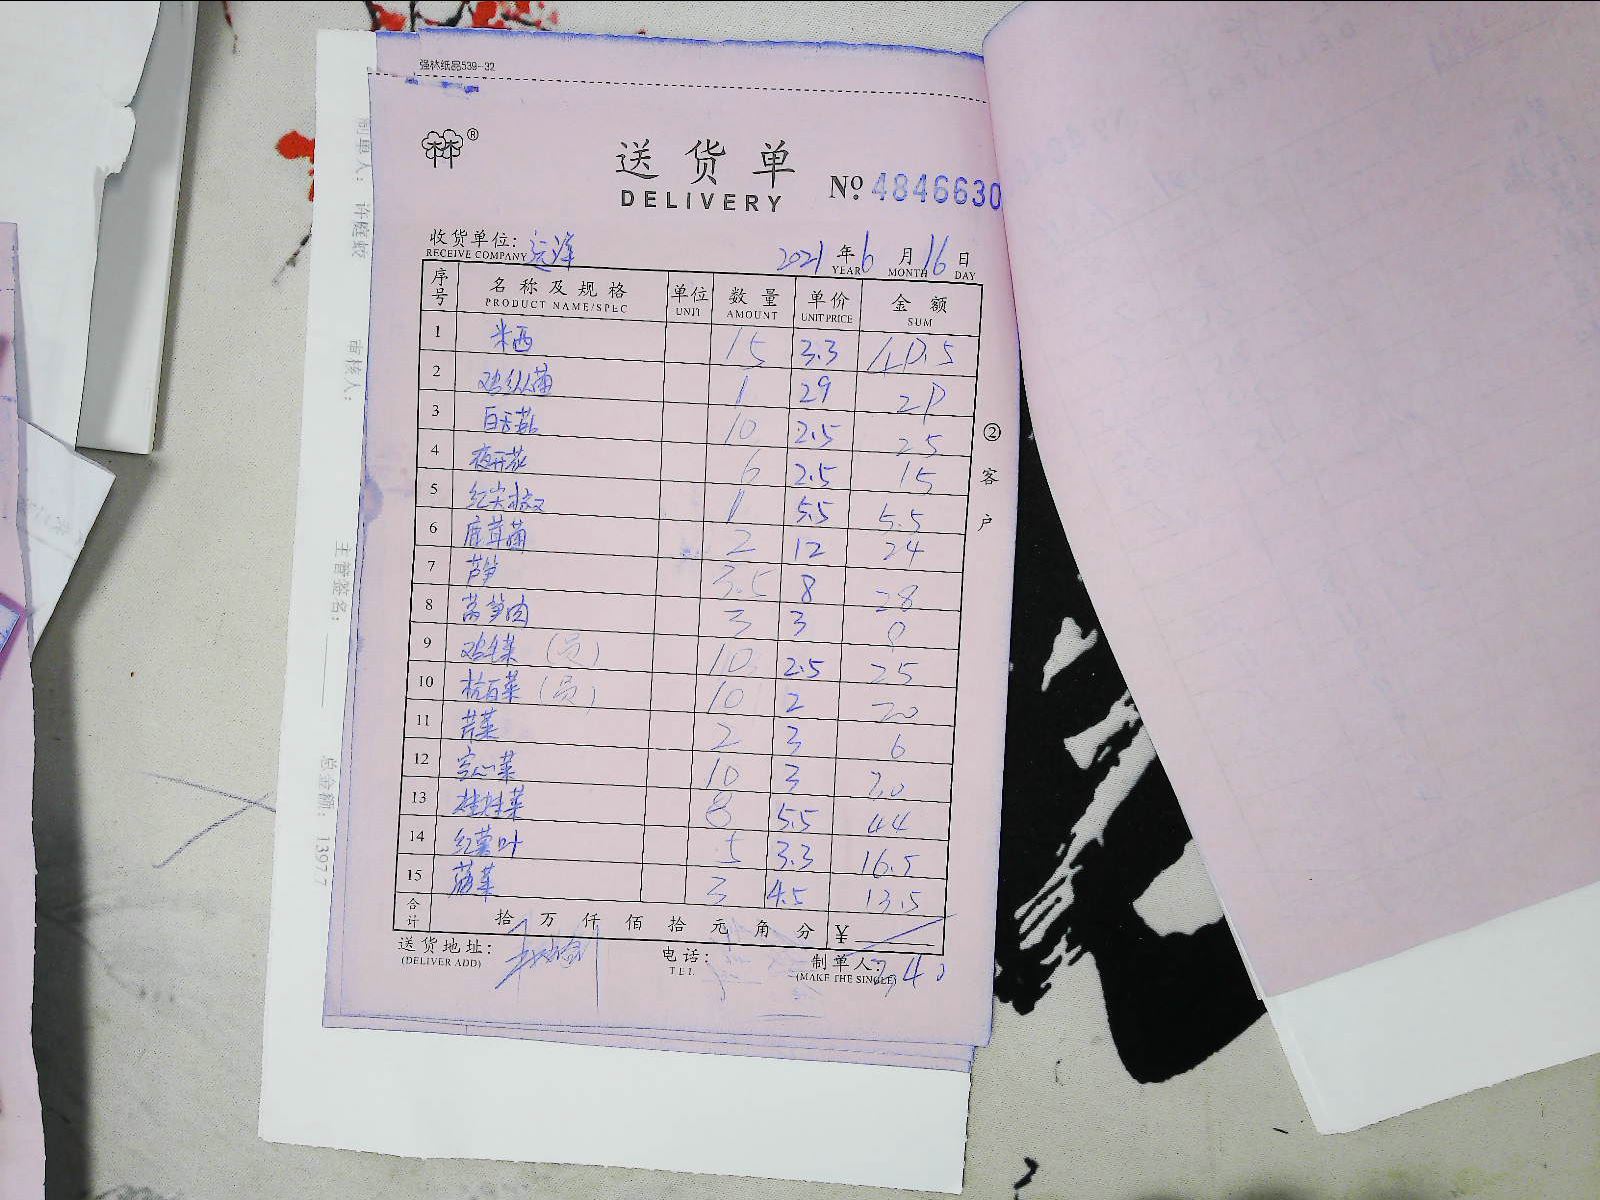 强林纸品539-32
林林®
送货单
DELIVERY
No. 4846630
收货单位: 远洋 2021年6月16日
RECEIVE COMPANY YEAR MONTH DAY
序号 名称及规格 单位 数量 单价 金额
PRODUCT NAME/SPEC UNIT AMOUNT UNIT PRICE SUM
1 米西 15 3.3 49.5
2 鸡枞菌 1 29 29
3 白玉菇 10 2.5 25
4 夜开花 6 2.5 15
5 红尖椒 1 5.5 5.5
6 鹿茸菌 2 12 24
7 芦笋 3.5 8 28
8 莴笋肉 3 3 9
9 鸡毛菜(员) 10 2.5 25
10 杭白菜(员) 10 2 20
11 芹菜 2 3 6
12 空心菜 10 3 30
13 8 5.5 44
14 红菜叶 5 3.3 16.5
15 菠菜 3 4.5 13.5
合计 拾 万 仟 佰 拾 元 角 分 ¥
送货地址: 电话: 制单人: 340
(DELIVER ADD) TEL (MAKE THE SINGLE)
②客户
制单人: 许庭蛟
审核人:
主管签名:
总金额: 13977